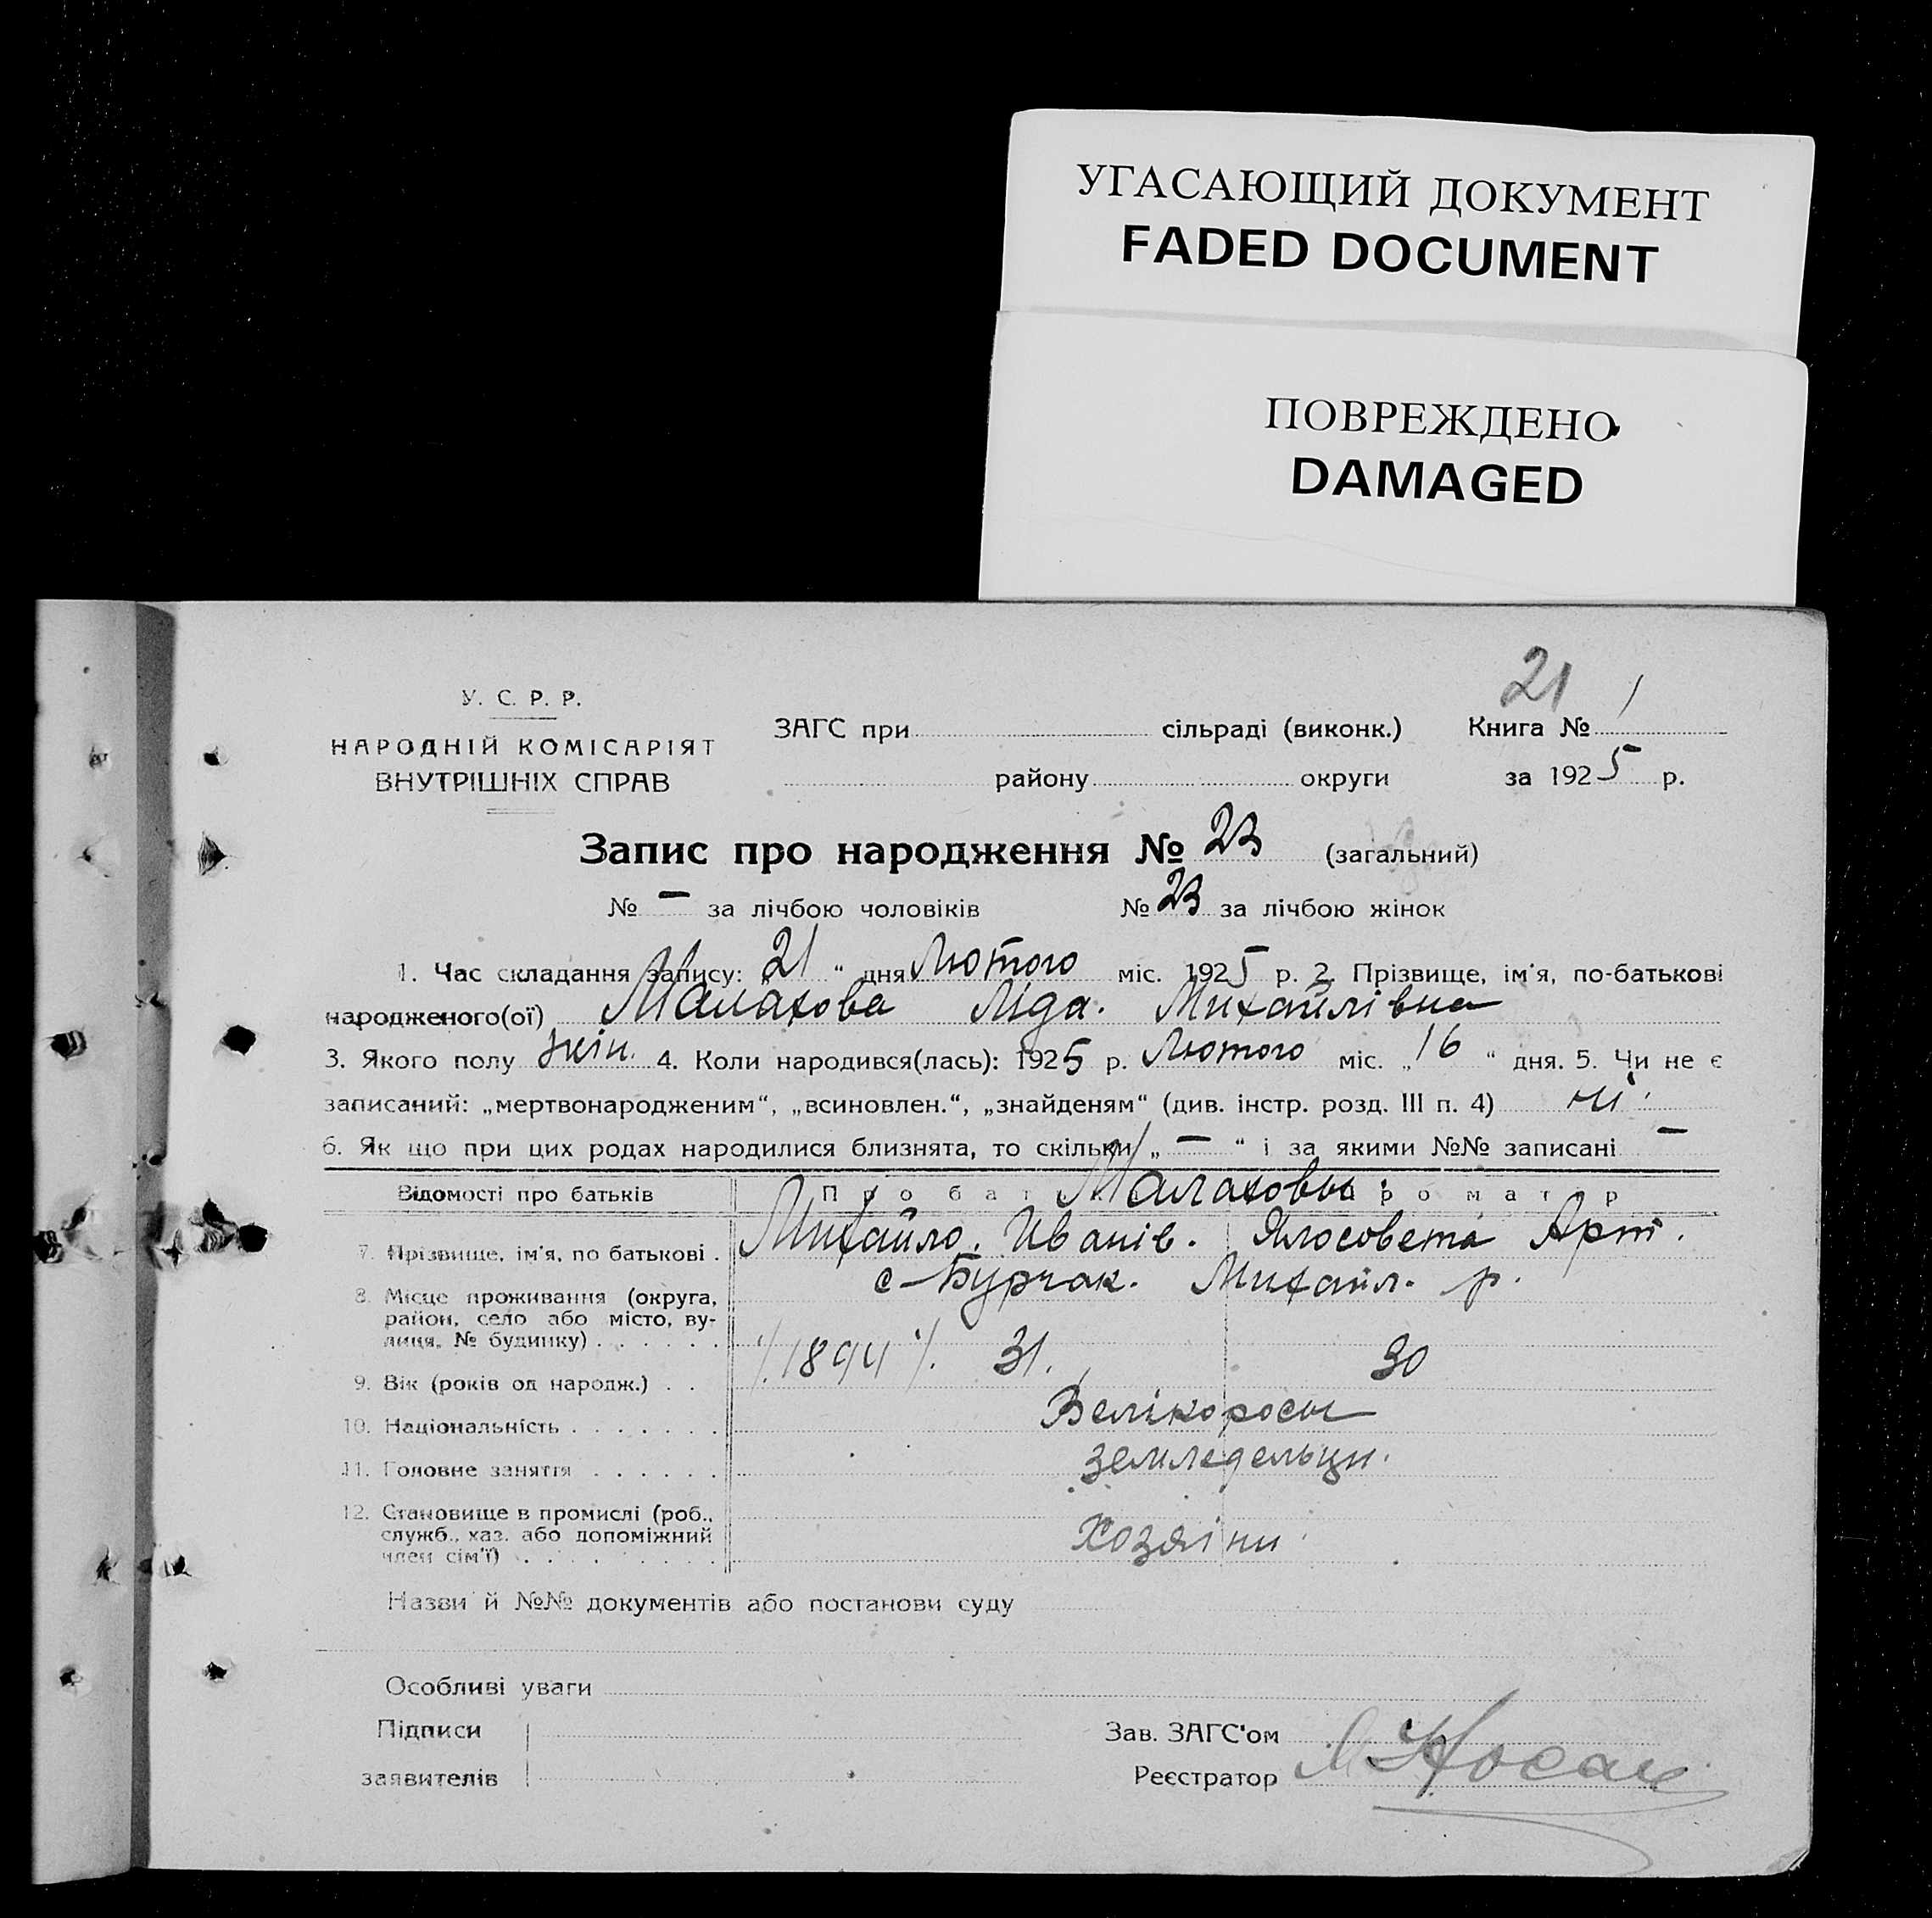 УГАСАЮЩИЙ ДОКУМЕНТ
FADED DOCUMENT
ПОВРЕЖДЕНО
DAMAGED
21
У. С. Р. Р.
НАРОДНІЙ КОМІСАРІЯТ
ВНУТРІШНІХ СПРАВ
ЗАГС при сільраді (виконк.) Книга № 1
району округи за 1925 р.
Запис про народження № 23 (загальний)
№ – за лічбою чоловіків № 23 за лічбою жінок
1. Час складання запису: „21“ дня Лютого міс. 1925 р. 2. Прізвище, ім'я, по-батькові
народженого(ої) Малахова Ліда. Михайлівна
3. Якого полу жін. 4. Коли народився(лась): 1925 р. Лютого міс. „16“ дня. 5. Чи не є
записаний: „мертвонародженим“, „всиновлен.“, „знайденям“ (див. інстр. розд. III п. 4) ні
6. Як що при цих родах народилися близнята, то скільки „–“ і за якими №№ записані –
Відомості про батьків Про батька Малаховы: Про матір
7. Прізвище, ім'я, по батькові . Михайло. Иванів. Ялосовета Арт.
8. Місце проживання (округа, с-Бурчак. Михайл. р.
район, село або місто, ву-
лиця, № будинку) . . . . . .
9. Вік (років од народж.) . . 1894 31. 30
10. Національність . . . . . . . Велікоросы
11. Головне заняття . . . . . . земледельци.
12. Становище в промислі (роб.,
служб., хаз. або допоміжний Хозяіни
член сім'ї) . . . . . . . . .
Назви й №№ документів або постанови суду
Особливі уваги
Підписи
заявителів
Зав. ЗАГС'ом
Реєстратор